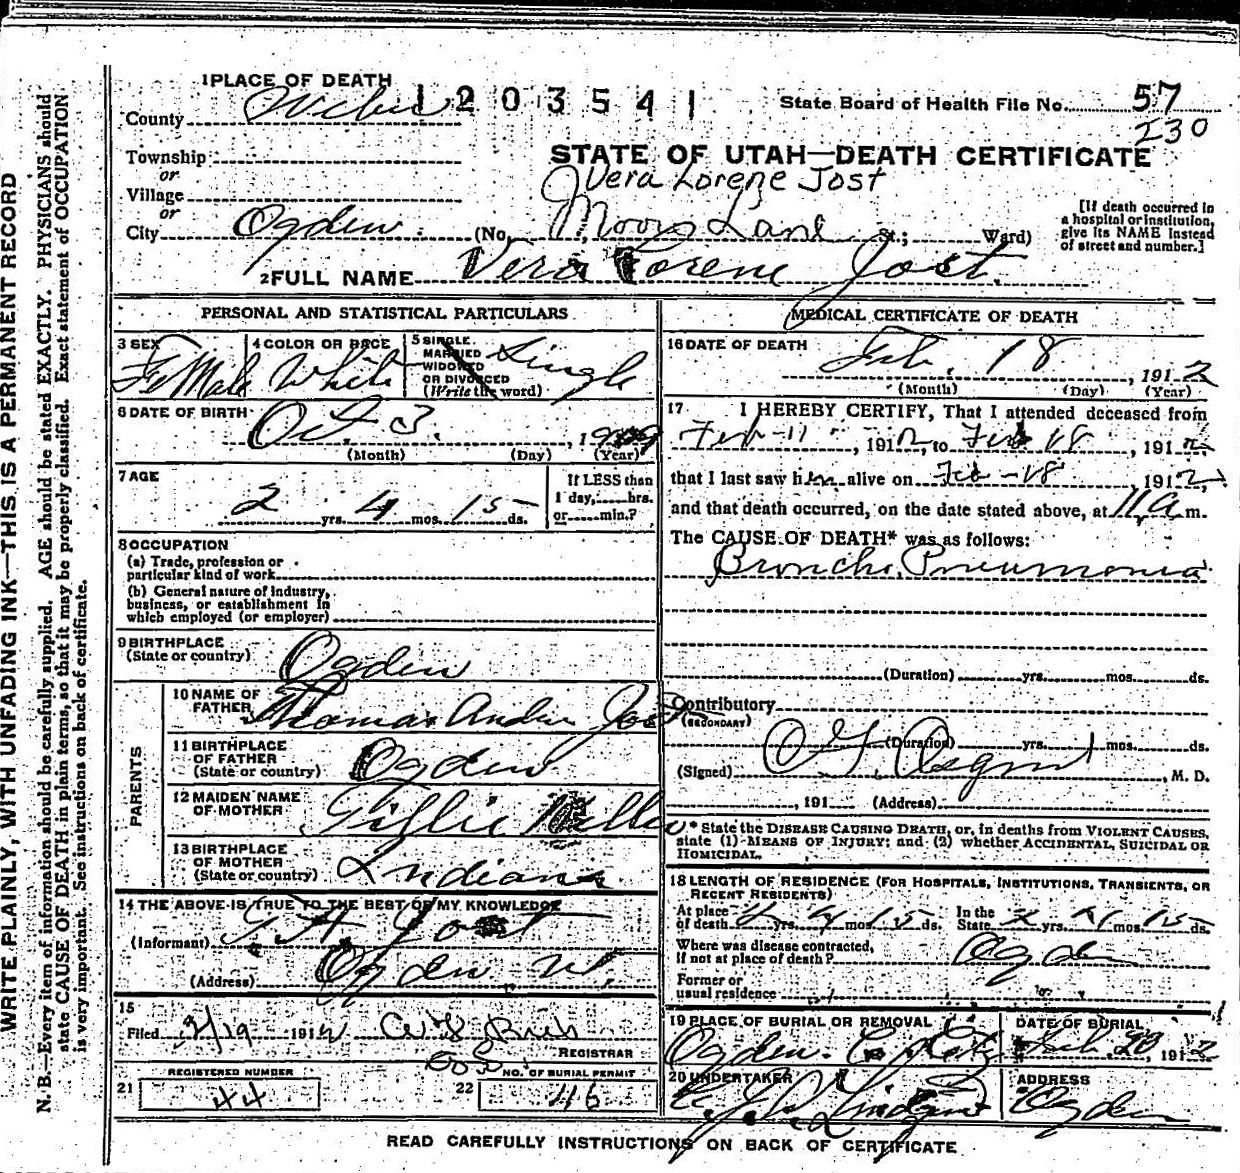 WRITE PLAINLY, WITH UNFADING INK—THIS IS A PERMANENT RECORD
N. B.—Every item of information should be carefully supplied. AGE should be stated EXACTLY. PHYSICIANS should
state CAUSE OF DEATH in plain terms, so that it may be properly classified. Exact statement of OCCUPATION
is very important. See instructions on back of certificate.
1 PLACE OF DEATH
1203541
State Board of Health File No. 57
230
County Weber
Township
or
Village
or
City Ogden
STATE OF UTAH—DEATH CERTIFICATE
Vera Lorene Jost
(No. Lane St.; Ward)
[If death occurred in
a hospital or institution,
give its NAME instead
of street and number.]
2 FULL NAME Vera Lorene Jost.
PERSONAL AND STATISTICAL PARTICULARS
3 SEX FeMale
4 COLOR OR RACE White
5 SINGLE
MARRIED
WIDOWED
OR DIVORCED
(Write the word)
Single
6 DATE OF BIRTH Oct. 3. , 1909
(Month) (Day) (Year)
7 AGE
2 yrs. 4 mos. 15 ds.
If LESS than
1 day, hrs.
or min.?
8 OCCUPATION
(a) Trade, profession or
particular kind of work
(b) General nature of industry,
business, or establishment in
which employed (or employer)
9 BIRTHPLACE
(State or country) Ogden
PARENTS
10 NAME OF
FATHER Thomas Jost
11 BIRTHPLACE
OF FATHER
(State or country) Ogden
12 MAIDEN NAME
OF MOTHER
13 BIRTHPLACE
OF MOTHER
(State or country) Indiana
14 THE ABOVE IS TRUE TO THE BEST OF MY KNOWLEDGE
(Informant) Jost
(Address) Ogden
15
Filed 2/19 1912
REGISTRAR
REGISTERED NUMBER
21 44
NO. OF BURIAL PERMIT
22 46
MEDICAL CERTIFICATE OF DEATH
16 DATE OF DEATH
Feb. 18 , 1912
(Month) (Day) (Year)
17 I HEREBY CERTIFY, That I attended deceased from
Feb-11 , 1912, to Feb 18 , 1912
that I last saw h alive on Feb-18 , 1912,
and that death occurred, on the date stated above, at 11 a m.
The CAUSE OF DEATH* was as follows:
Broncho Pneumonia
(Duration) yrs. mos. ds.
Contributory
(SECONDARY)
(Duration) yrs. mos. ds.
(Signed) , M. D.
, 191 (Address)
* State the DISEASE CAUSING DEATH, or, in deaths from VIOLENT CAUSES,
state (1) MEANS OF INJURY; and (2) whether ACCIDENTAL, SUICIDAL OR
HOMICIDAL.
18 LENGTH OF RESIDENCE (FOR HOSPITALS, INSTITUTIONS, TRANSIENTS, OR
RECENT RESIDENTS)
At place
of death 2 yrs. 4 mos. 15 ds.
In the
State 2 yrs. 4 mos. 15 ds.
Where was disease contracted,
if not at place of death? Ogden
Former or
usual residence
19 PLACE OF BURIAL OR REMOVAL
Ogden City
DATE OF BURIAL
Feb 20, 1912
20 UNDERTAKER
ADDRESS
Ogden
READ CAREFULLY INSTRUCTIONS ON BACK OF CERTIFICATE